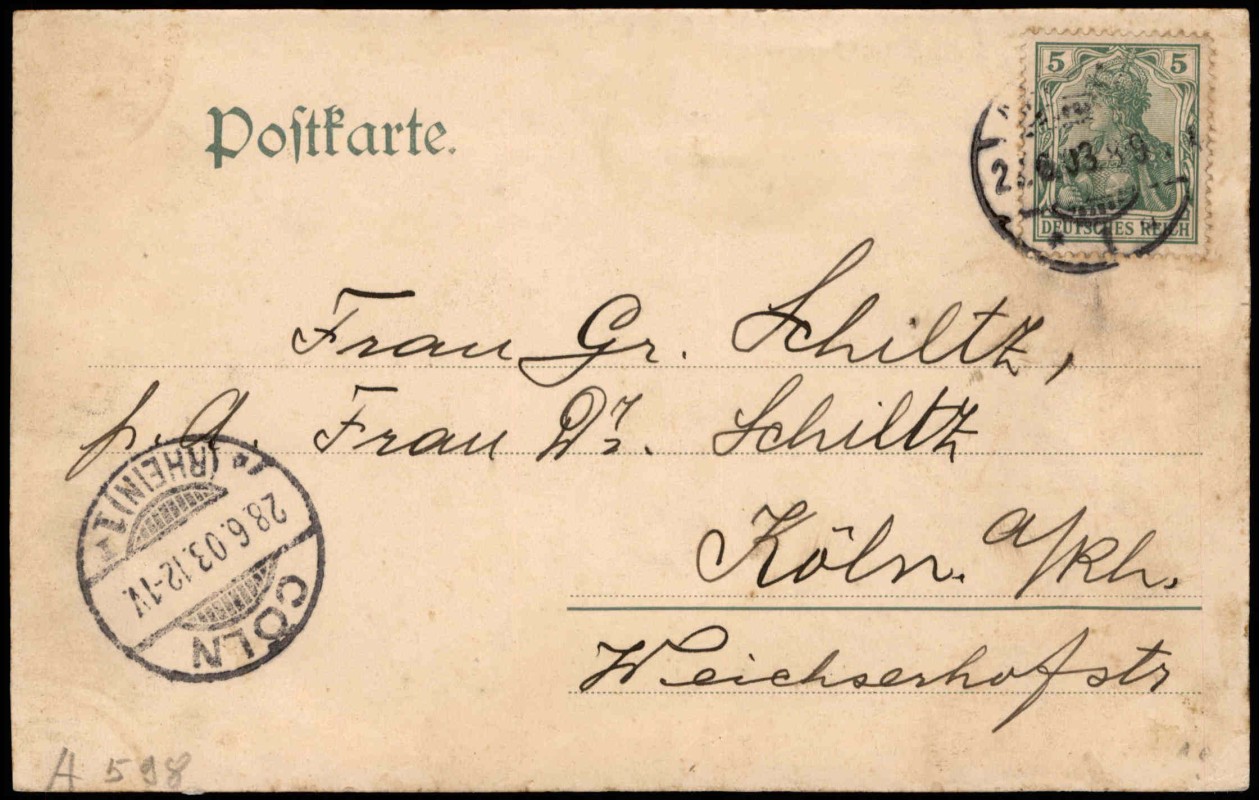 Postkarte.
5 5
6.03 8-9
DEUTSCHES REICH
Frau Gr. Schiltz,
p. A. Frau Dr. Schiltz
Köln. a/Rh.
Weichserhofstr
CÖLN
(RHEIN) 1
28.6.03.12-1V.
A 598